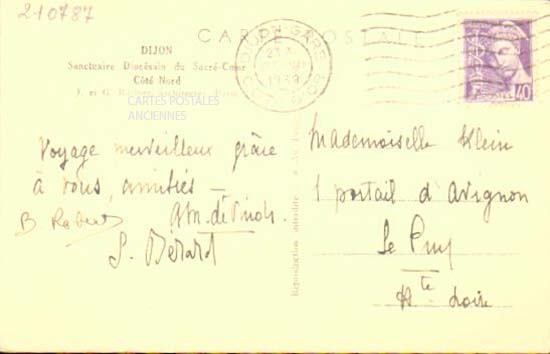 210787
CARTE POSTALE
DIJON
Sanctuaire Diocésain du Sacré-Cœur
Côté Nord
J. et G. Architectes, Paris
CARTES POSTALES
ANCIENNES
DIJON-GARE
1939
CÔTE D'OR
40
Voyage merveilleux grâce
à vous, amitiés —
B Robert
S. Bérard
Reproduction interdite
Mademoiselle Klein
1 portail d'Avignon
Le Puy
Hte Loire